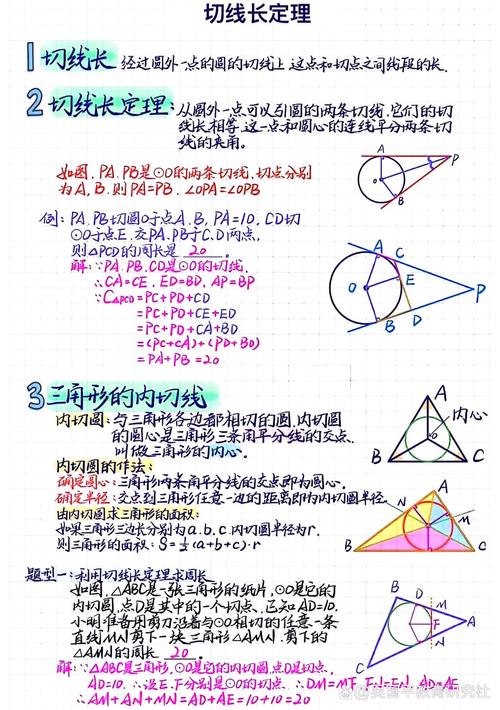 切线长定理
1 切线长 经过圆外一点的圆的切线上,这点和切点之间线段的长.
2 切线长定理:从圆外一点可以引圆的两条切线,它们的切
线长相等,这一点和圆心的连线平分两条切
线的夹角。
如图,PA、PB是⊙O的两条切线,切点分别
为A、B,则PA=PB,∠OPA=∠OPB
A
O
P
B
例:PA、PB切圆O于点A、B,PA=10,CD切
⊙O于点E,交PA、PB于C、D两点,
则△PCD的周长是 20 。
解:∵PA、PB、CD是⊙O的切线,
∴CA=CE,ED=BD,AP=BP
∵C△PCD=PC+PD+CD
=PC+PD+CE+ED
=PC+PD+CA+BD
=(PC+CA)+(PD+BD)
=PA+PB=20
A
C
O
E
P
B
D
3 三角形的内切线
内切圆:与三角形各边都相切的圆,内切圆
的圆心是三角形三条角平分线的交点,
叫做三角形的内心。
A
内心
O
B
C
内切圆的作法:
确定圆心:三角形两条角平分线的交点即为圆心。
确定半径:交点到三角形任意一边的距离即为内切圆半径
由内切圆求三角形的面积:
如果三角形三边长分别为a、b、c,内切圆半径为r,
则三角形的面积:S=½(a+b+c)·r
A
N
M
B
C
题型一:利用切线长定理求周长
如图,△ABC是一张三角形的纸片,⊙O是它的
内切圆,点D是其中的一个切点,已知AD=10,
小明准备用剪刀沿着与⊙O相切的任意一条
直线MN剪下一块三角形△AMN,剪下的
△AMN的周长 20 。
B
D
M
A
F
N
C
解:∵△ABC是三角形,⊙O是它的内切圆,点D是切点,
AD=10,∴设E、F分别是⊙O的切点,∴DM=MF,FN=EN,AD=AE
∴AM+AN+MN=AD+AE=10+10=20